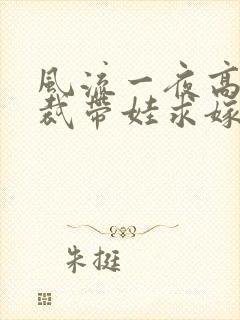 风流一夜高
裁带娃求嫁
朱挺